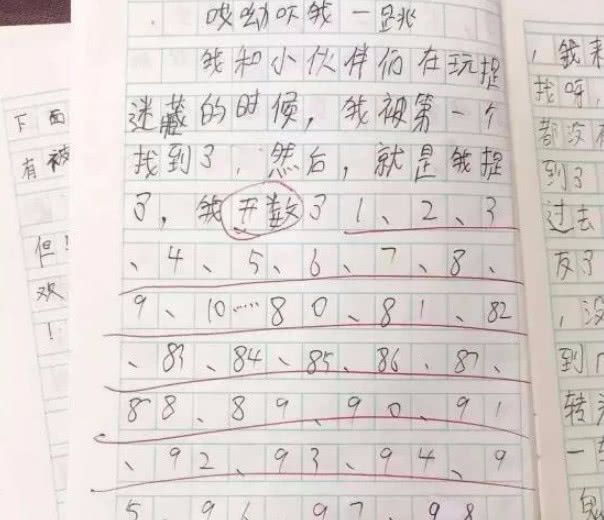 哎呦吓我一跳
我和小伙伴们在玩捉
迷藏的时候，我被第一个
找到了．然后，就是我捉
了，我开数了1、2、3
、4、5、6、7、8、
9、10……80、81、82
、83、84、85、86、87、
88、89、90、91
、92、93、94、9
5、96、97、98
下面
有被
但！
欢
！
，我来
找呀，
都没有
到了
过去
反了
，没
到广
转头
一
鬼